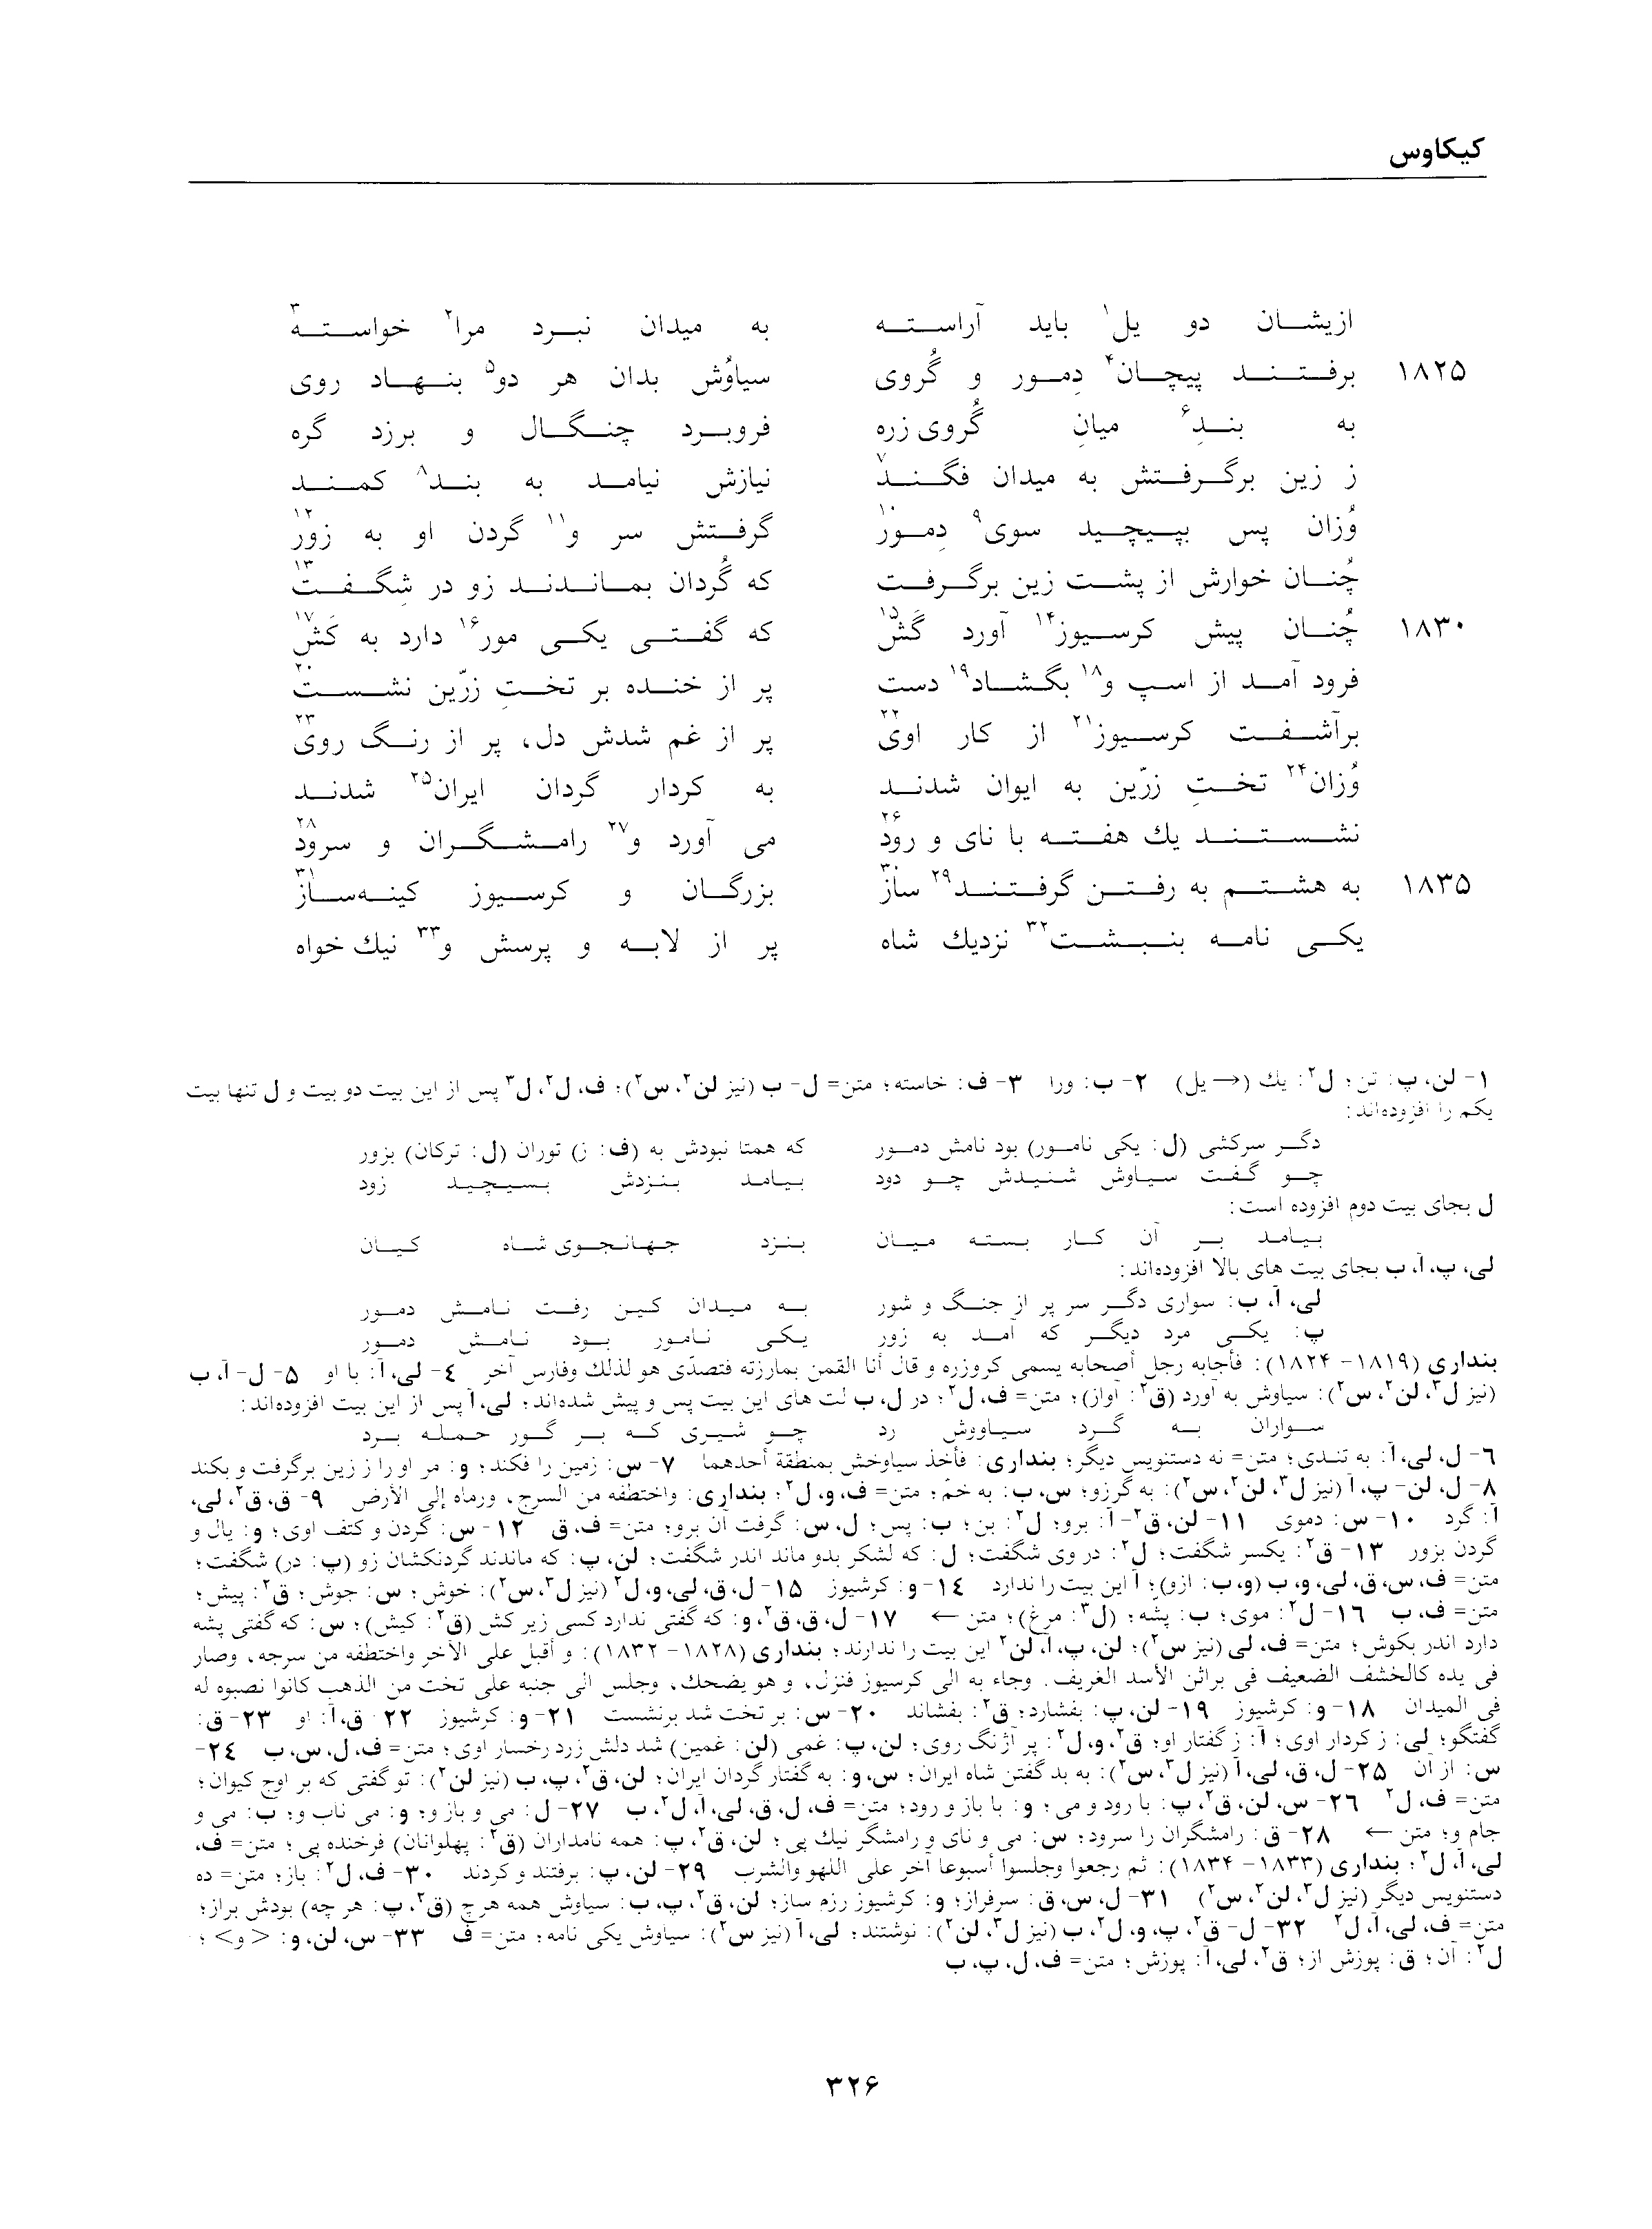 کیکاوس
ازیشان دو یل۱ باید آراسته به میدان نبرد مرا۲ خواسته۳
۱۸۲۵ برفتند پیچان۴ دِمور و گُروی سیاوُش بدان هر دو۵ بنهاد روی
به بندِ۶ میانِ گُروی زره فروبرد چنگال و برزد گره
ز زین برگرفتش به میدان فگند۷ نیازش نیامد به بند۸ کمند
وُزان پس بپیچید سوی۹ دِمور۱۰ گرفتش سر و۱۱ گردن او به زور۱۲
چُنان خوارش از پشت زین برگرفت که گُردان بماندند زو در شِگفت۱۳
۱۸۳۰ چُنان پیش کرسیوز۱۴ آورد گَش۱۵ که گفتی یکی مور۱۶ دارد به کَش۱۷
فرود آمد از اسپ و۱۸ بگشاد۱۹ دست پر از خنده بر تختِ زرّین نشست۲۰
برآشفت کرسیوز۲۱ از کار اوی۲۲ پر از غم شدش دل، پر از رنگ روی۲۳
وُزان۲۴ تختِ زرّین به ایوان شدند به کردار گردان ایران۲۵ شدند
نشستند یك هفته با نای و رود۲۶ می آورد و۲۷ رامشگران و سرود۲۸
۱۸۳۵ به هشتم به رفتن گرفتند۲۹ ساز۳۰ بزرگان و کرسیوز کینه‌ساز۳۱
یکی نامه بنبشت۳۲ نزدیك شاه پر از لابه و پرسش و۳۳ نیك خواه
۱- لن، پ: تن؛ ل۲: یك (→ یل) ۲- ب: ورا ۳- ف: خاسته؛ متن= ل- ب (نیز لن۲، س۲)؛ ف، ل۲، ل۳ پس از این بیت دو بیت و ل تنها بیت
یکم را افزوده‌اند:
دگر سرکشی (ل: یکی نامور) بود نامش دمور که همتا نبودش به (ف: ز) توران (ل: ترکان) بزور
چو گفت سیاوش شنیدش چو دود بیامد بنزدش بسیچید زود
ل بجای بیت دوم افزوده است:
بیامد بر آن کار بسته میان بنزد جهانجوی شاه کیان
لی، پ، آ، ب بجای بیت های بالا افزوده‌اند:
لی، آ، ب: سواری دگر سر پر از جنگ و شور به میدان کین رفت نامش دمور
پ: یکی مرد دیگر که آمد به زور یکی نامور بود نامش دمور
بنداری (۱۸۱۹- ۱۸۲۴): فأجابه رجل أصحابه یسمی کروزره و قال أنا القمن بمارزته فتصدّی هو لذلك وفارس آخر ٤- لی، آ: با او ۵- ل- آ، ب
(نیز ل۳، لن۲، س۲): سیاوش به آورد (ق۲: آواز)؛ متن= ف، ل۲؛ در ل، ب لت های این بیت پس و پیش شده‌اند؛ لی، آ پس از این بیت افزوده‌اند:
سواران به گرد سیاووش رد چو شیری که بر گور حمله برد
٦- ل، لی، آ: به تندی؛ متن= نه دستنویس دیگر؛ بنداری: فأخذ سیاوخش بمنطقة أحدهما ۷- س: زمین را فکند؛ و: مر او را ز زین برگرفت و بکند
۸- ل، لن- پ، آ (نیز ل۳، لن۲، س۲): به گرزو؛ س، ب: به خمّ؛ متن= ف، و، ل۲؛ بنداری: واختطفه من السرج، ورماه إلی الأرض ۹- ق، ق۲، لی،
آ: گرد ۱۰- س: دموی ۱۱- لن، ق۲-آ: برو؛ ل۲: بن؛ ب: پس؛ ل، س: گرفت آن برو؛ متن= ف، ق ۱۲- س: گردن و کتف اوی؛ و: یال و
گردن بزور ۱۳- ق۲: یکسر شگفت؛ ل۲: در وی شگفت؛ ل: که لشکر بدو ماند اندر شگفت؛ لن، پ: که ماندند گردنکشان زو (پ: در) شگفت؛
متن= ف، س، ق، لی، و، ب (و، ب: ازو)؛ آ این بیت را ندارد ۱٤- و: کرشیوز ۱۵- ل، ق، لی، و، ل۲ (نیز ل۳، س۲): خوش؛ س: جوش؛ ق۲: پیش؛
متن= ف، ب ۱٦- ل۲: موی؛ ب: پشه؛ (ل۳: مرغ)؛ متن ← ۱۷- ل، ق، ق۲، و: که گفتی ندارد کسی زیر کش (ق۲: کیش)؛ س: که گفتی پشه
دارد اندر بکوش؛ متن= ف، لی (نیز س۲)؛ لن، پ، آ، لن۲ این بیت را ندارند؛ بنداری (۱۸۲۸- ۱۸۳۲): و أقبل علی الآخر واختطفه من سرجه، وصار
فی یده کالخشف الضعیف فی براثن الأسد الغریف. وجاء به الی کرسیوز فنزل، و هو یضحك، وجلس الی جنبه علی تخت من الذهب کانوا نصبوه له
فی المیدان ۱۸- و: کرشیوز ۱۹- لن، پ: بفشارد؛ ق۲: بفشاند ۲۰- س: بر تخت شد برنشست ۲۱- و: کرشیوز ۲۲- ق، آ: او ۲۳- ق:
گفتگو؛ لی: ز کردار اوی؛ آ: ز گفتار او؛ ق۲، و، ل۲: پر آژنگ روی؛ لن، پ: غمی (لن: غمین) شد دلش زرد رخسار اوی؛ متن= ف، ل، س، ب ۲٤-
س: از آن ۲۵- ل، ق، لی، آ (نیز ل۳، س۲): به بد گفتن شاه ایران؛ س، و: به گفتار گردان ایران؛ لن، ق۲، پ، ب (نیز لن۲): تو گفتی که بر اوج کیوان؛
متن= ف، ل۲ ۲٦- س، لن، ق۲، پ: با رود و می؛ و: با باز و رود؛ متن= ف، ل، ق، لی، آ، ل۲، ب ۲۷- ل: می و باز و؛ و: می ناب و؛ ب: می و
جام و؛ متن ← ۲۸- ق: رامشگران را سرود؛ س: می و نای و رامشگر نیك پی؛ لن، ق۲، پ: همه نامداران (ق۲: پهلوانان) فرخنده پی؛ متن= ف،
لی، آ، ل۲؛ بنداری (۱۸۳۳- ۱۸۳۴): ثم رجعوا وجلسوا أسبوعا آخر علی اللهو والشرب ۲۹- لن، پ: برفتند و کردند ۳۰- ف، ل۲: باز؛ متن= ده
دستنویس دیگر (نیز ل۳، لن۲، س۲) ۳۱- ل، س، ق: سرفراز؛ و: کرشیوز رزم ساز؛ لن، ق۲، پ، ب: سیاوش همه هرچ (ق۲، پ: هر چه) بودش براز؛
متن= ف، لی، آ، ل۲ ۳۲- ل- ق۲، پ، و، ل۲، ب (نیز ل۳، لن۲): نوشتند؛ لی، آ (نیز س۲): سیاوش یکی نامه؛ متن= ف ۳۳- س، لن، و: <و>؛
ل۲: آن؛ ق: پوزش از؛ ق۲، لی، آ: پوزش؛ متن= ف، ل، پ، ب
۳۲۶